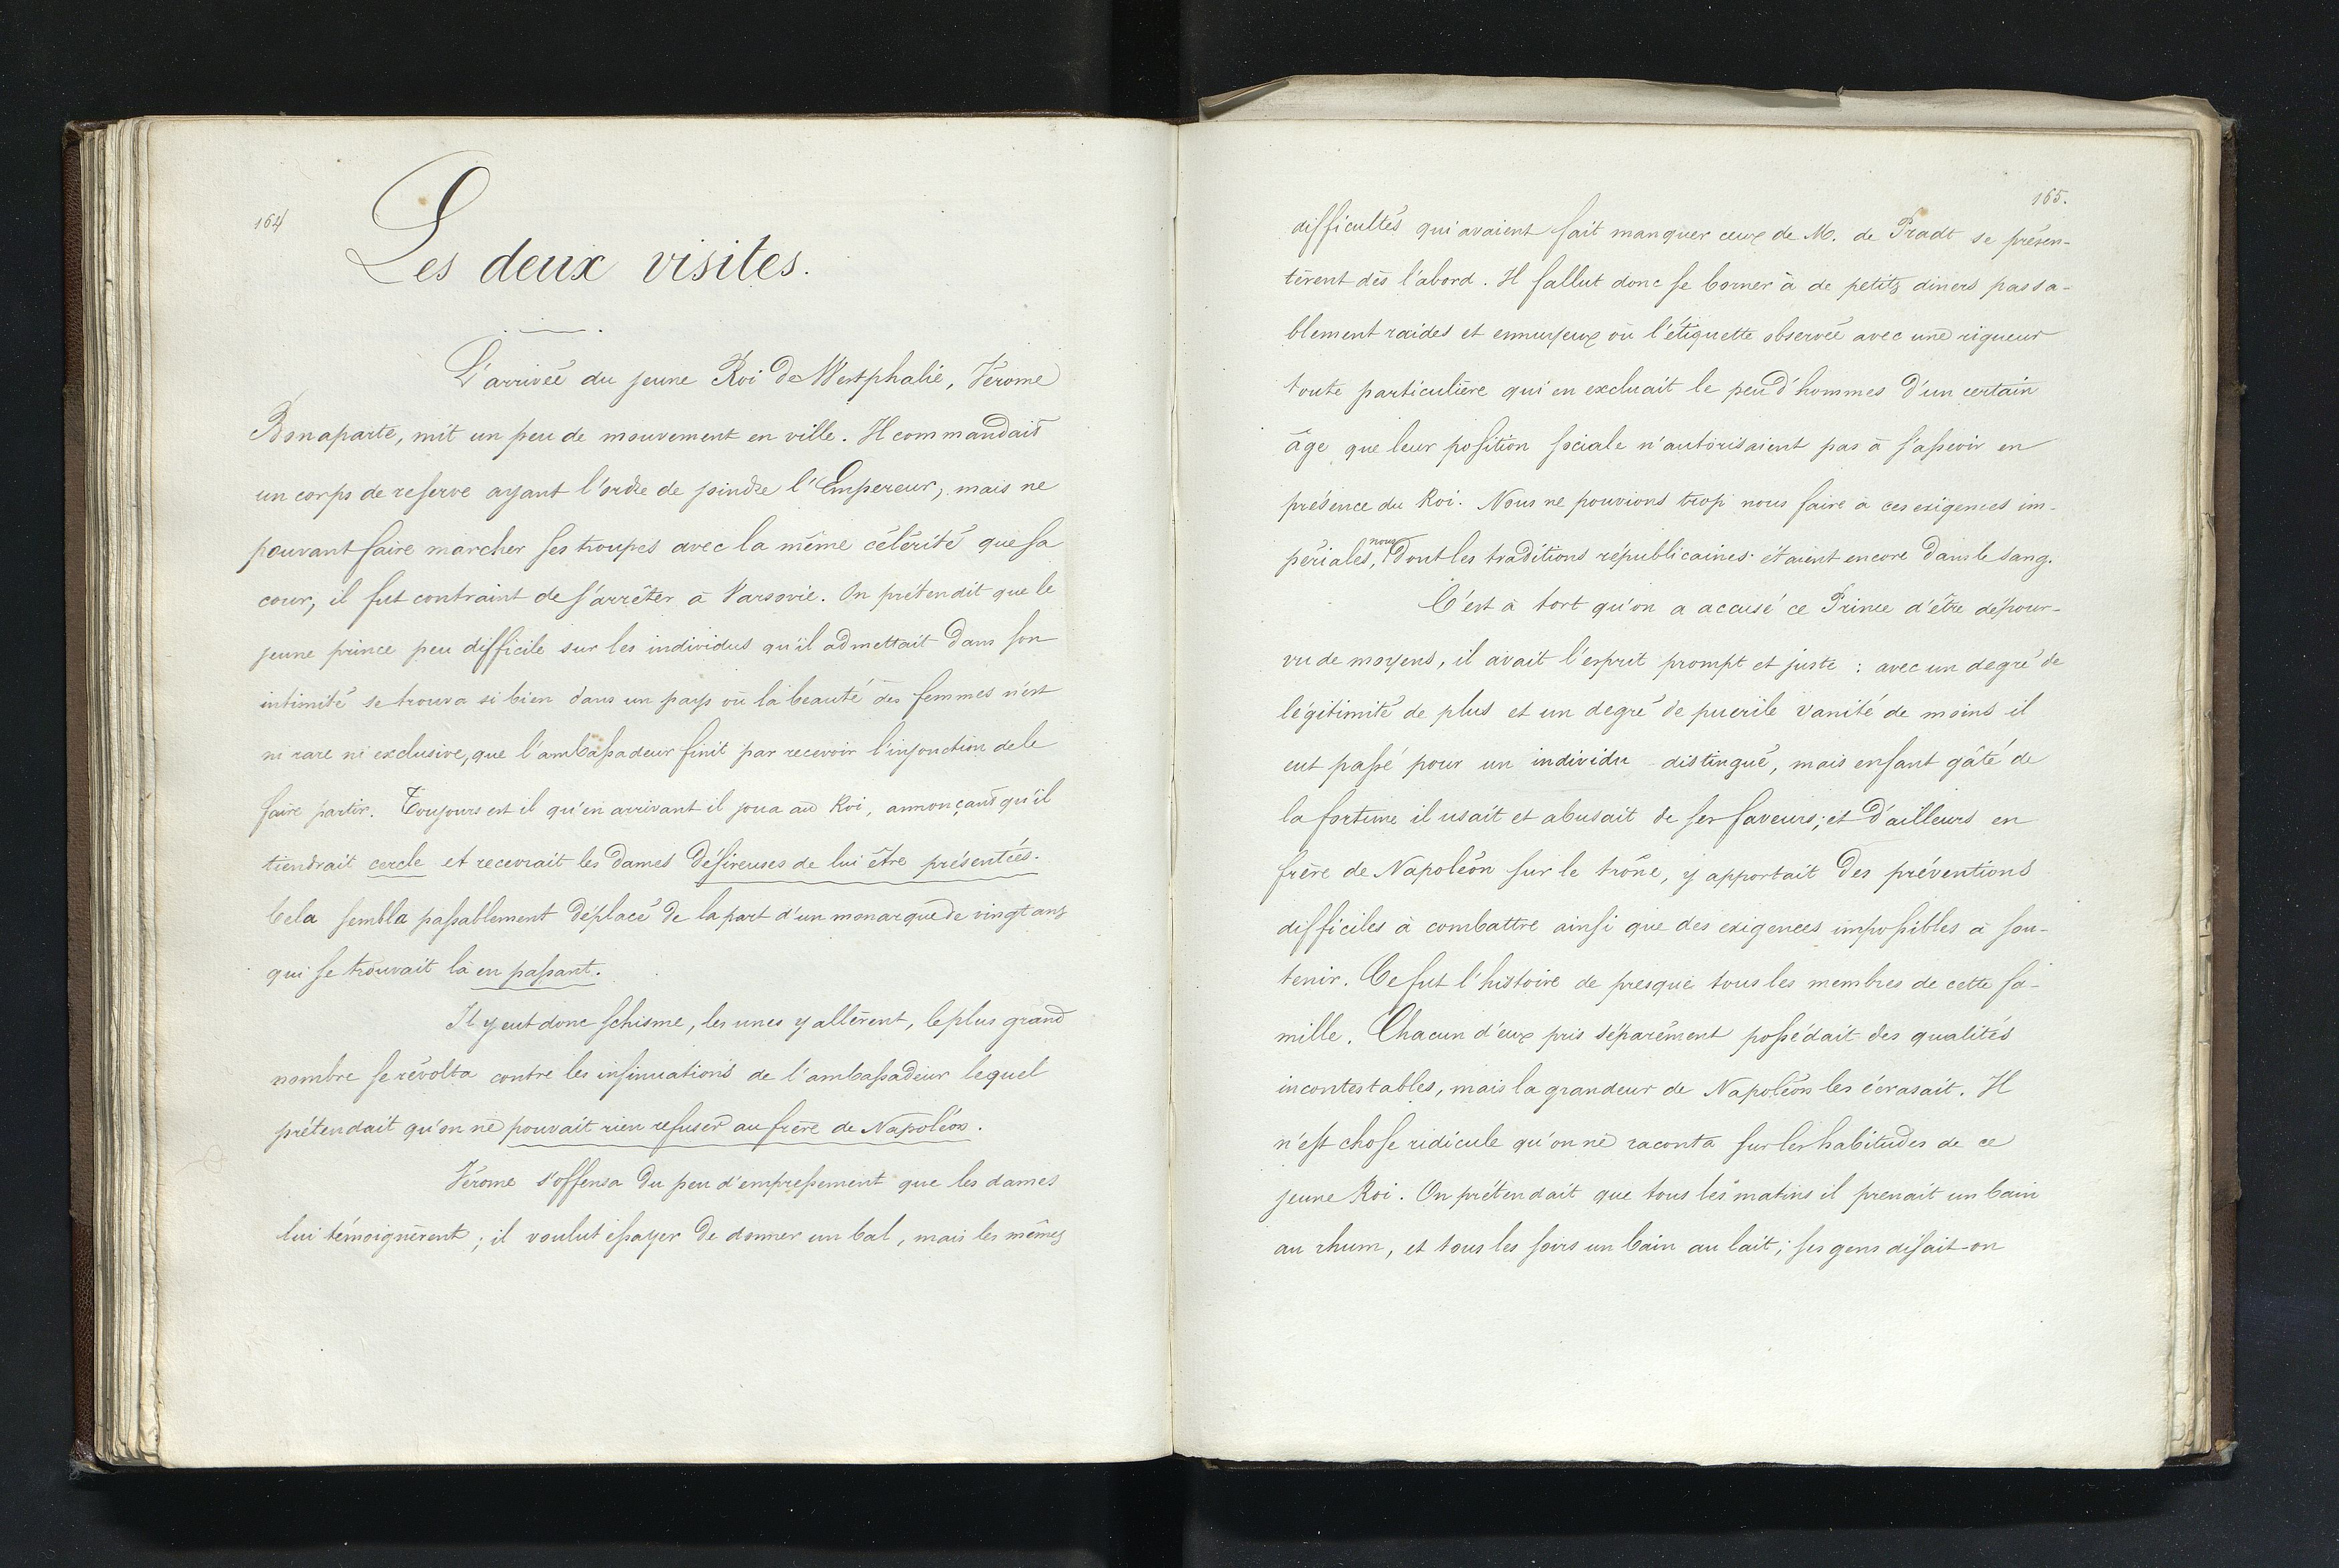 164
Les deux visites.
L'arrivée du jeune Roi de Westphalie, Jérome
Bonaparte, mit un peu de mouvement en ville. Il commandait
un corps de reserve ayant l'ordre de joindre l'Empereur, mais ne
pouvant faire marcher ses troupes avec la même célérité que sa
cour, il fut contraint de s'arrêter à Varsovie. On prétendit que le
jeune prince peu difficile sur les individus qu'il admettait dans son
intimité se trouva si bien dans un pays où la beauté des femmes n'est
ni rare ni exclusive, que l'ambassadeur finit par recevoir l'injonction de le
faire partir. Toujours est il qu'en arrivant il joua au Roi, annonçant qu'il
tiendrait cercle et recevrait les dames désireuses de lui être présentées.
Cela sembla passablement déplacé de la part d'un monarque de vingt ans
qui se trouvait là en passant.
Il y eut donc schisme, les unes y allèrent, le plus grand
nombre se révolta contre les insinuations de l'ambassadeur lequel
prétendait qu'on ne pouvait rien refuser au frère de Napoléon.
Jérome s'offensa du peu d'empressement que les dames
lui témoignèrent ; il voulut essayer de donner un bal, mais les mêmes
165.
difficultés qui avaient fait manquer ceux de M. de Pradt se présen-
tèrent dès l'abord. Il fallut donc se borner à de petits diners passa-
blement raides et ennuyeux où l'étiquette observée avec une rigueur
toute particulière qui en excluait le peu d'hommes d'un certain
âge que leur position sociale n'autorisaient pas à s'asseoir en
présence du Roi. Nous ne pouvions trop nous faire à ces exigences im-
périales, nous dont les traditions républicaines étaient encore dans le sang.
C'est à tort qu'on a accusé ce Prince d'être dépour-
vu de moyens, il avait l'esprit prompt et juste : avec un degré de
légitimité de plus et un degré de puerile vanité de moins il
eut passé pour un individu distingué, mais enfant gâté de
la fortune il usait et abusait de ses faveurs; et d'ailleurs en
frère de Napoléon sur le trône, y apportait des préventions
difficiles à combattre ainsi que des exigences impossibles à sou-
tenir. Ce fut l'histoire de presque tous les membres de cette fa-
mille. Chacun d'eux pris séparément possédait des qualités
incontestables, mais la grandeur de Napoléon les écrasait. Il
n'est chose ridicule qu'on ne raconta sur les habitudes de ce
jeune Roi. On prétendait que tous les matins il prenait un bain
au rhum, et tous les soirs un bain au lait ; ses gens disait-on